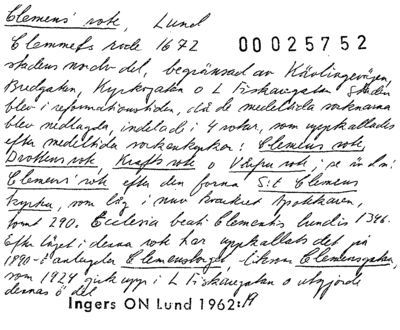 Clemens' rote, Lund
Clemmetz rode 1672 00025752
stadens nordv del, begränsad av Kävlingevägen,
Bredgatan, Kyrkogatan o L Fiskaregatan Staden
blev i reformationstiden, då de medeltida socknarna
blev nedlagda, indelad i 4 rotar, som uppkallades
efter medeltida sockenkyrkor: Clemens rote,
Drottens rote, Krafts rote o Vårfru rote, se äldm:
Clemens' rote efter den forna S:t Clemens
kyrka, som låg i nuv Bracket
tomt 290. Ecclesia beati Clementis lundis 1346.
Efter läget i denna rote har uppkallats det på
1890-t anlagda Clemenstorget, liksom Clemensgatan,
som 1924 gick upp i L Fiskaregatan o utgjorde
dennas ö del
Ingers ON Lund 1962:19